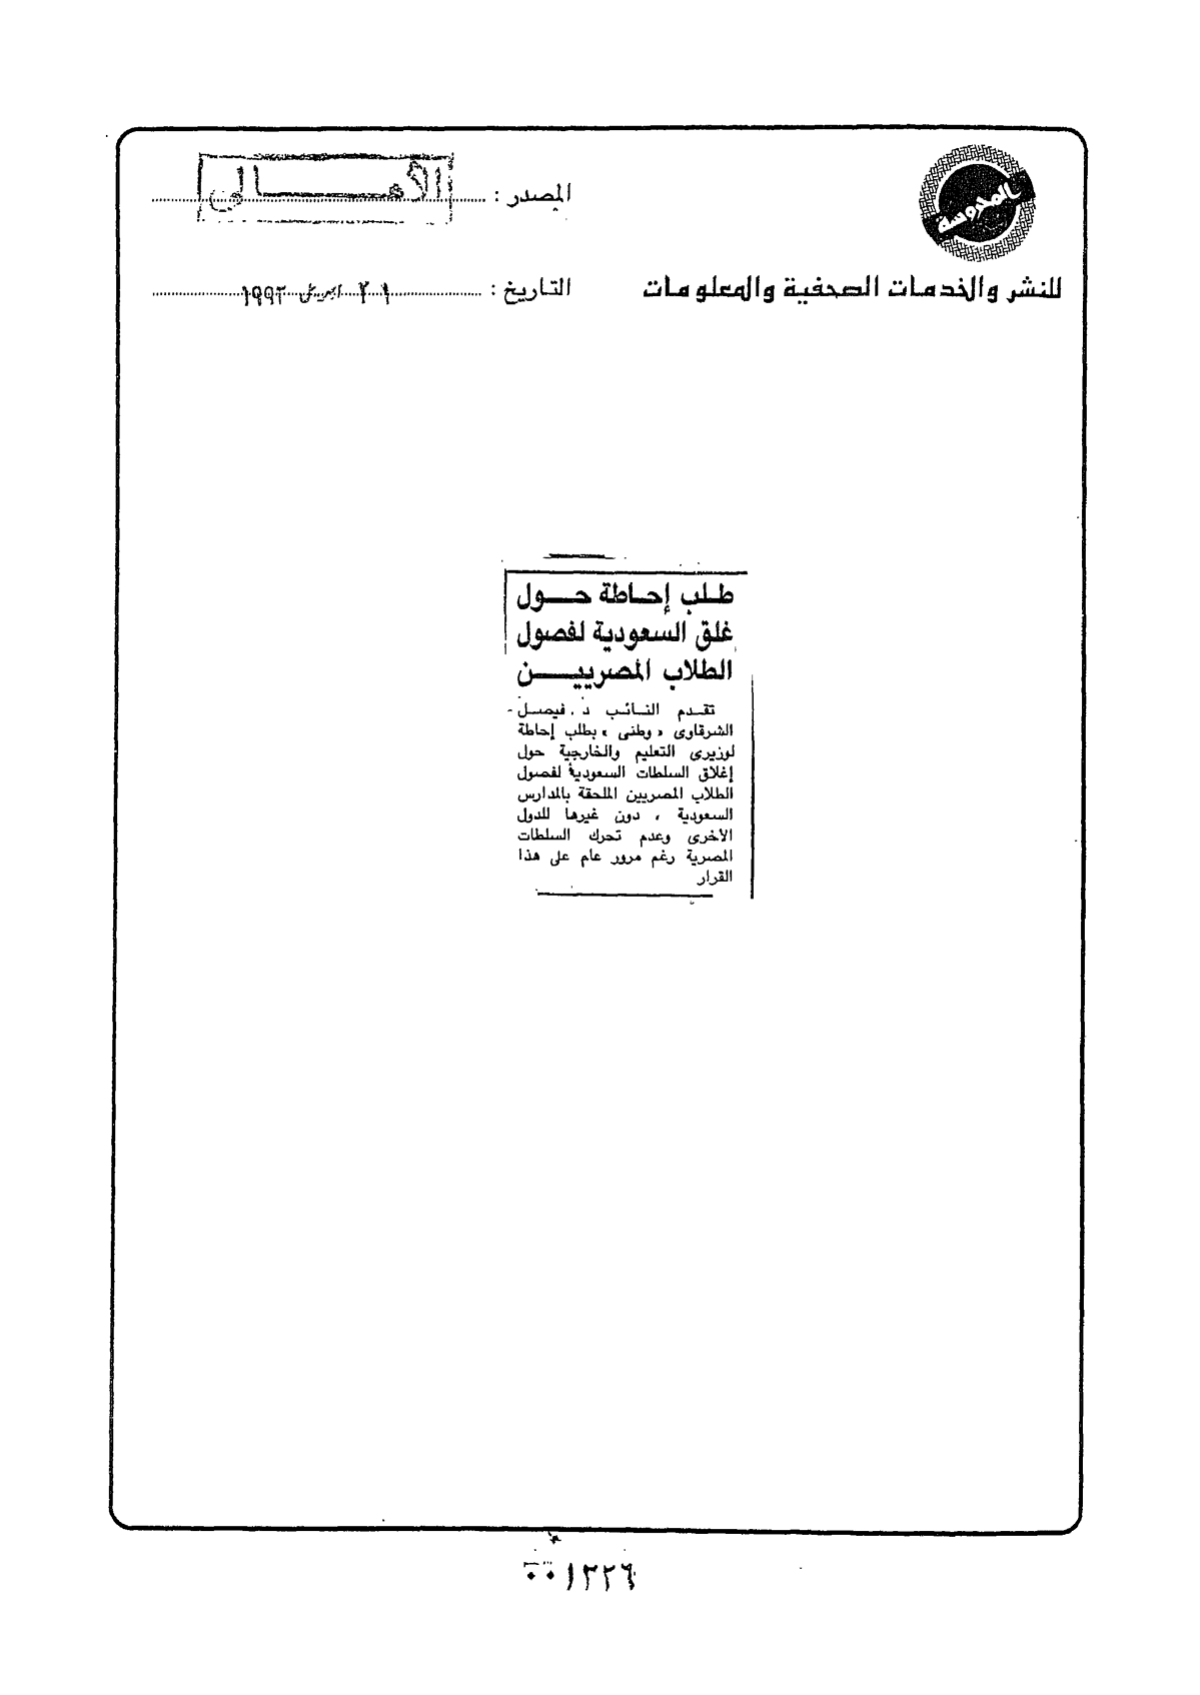 المصدر : الأهالى
المحروسة
للنشر والخدمات الصحفية والمعلومات
التاريخ : ٢١ ابريل ١٩٩٢
طلب إحاطة حول
غلق السعودية لفصول
الطلاب المصريين
تقدم النائب د . فيصل
الشرقاوى « وطنى » بطلب إحاطة
لوزيرى التعليم والخارجية حول
إغلاق السلطات السعودية لفصول
الطلاب المصريين الملحقة بالمدارس
السعودية ، دون غيرها للدول
الأخرى وعدم تحرك السلطات
المصرية رغم مرور عام على هذا
القرار
٠٠١٢٢٦